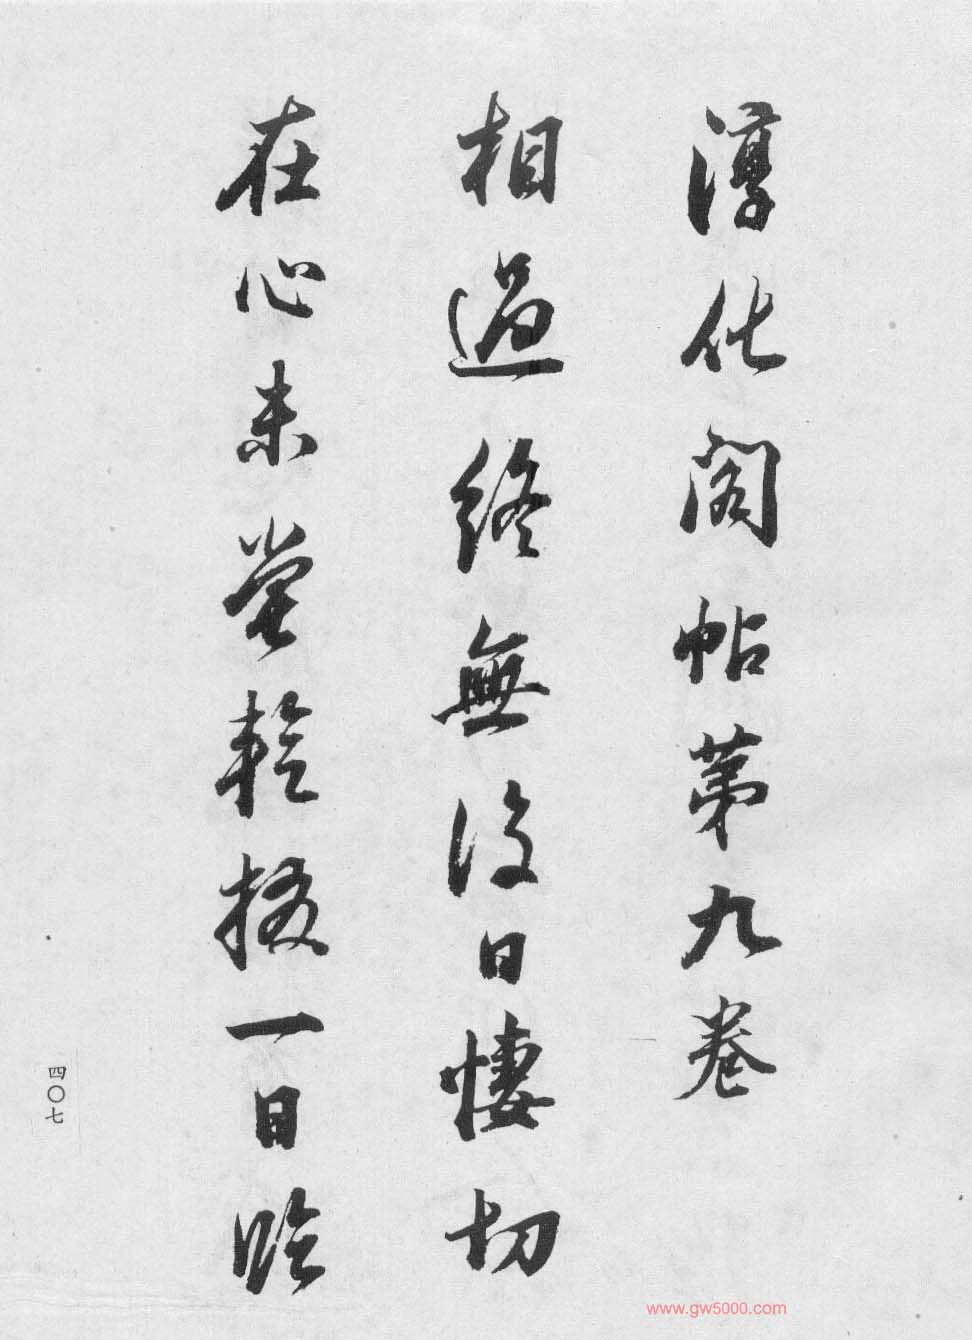 淳化閣帖第九卷
相過終無復日悽切
在心未嘗暫掇一日臨
四〇七
www.gw5000.com